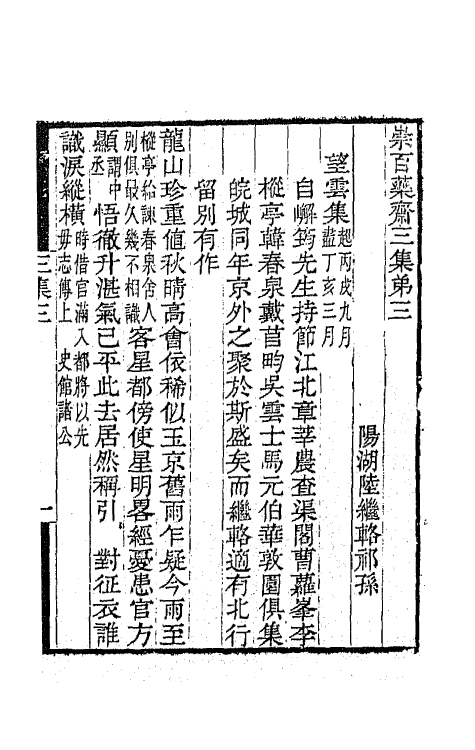 崇百藥齋三集第三
陽湖陸繼輅祁孫
望雲集起丙戌九月盡丁亥三月
自嶰筠先生持節江北章莘農查渠閣曹蘿峯李
樅亭韓春泉戴莒畇吳雲士馬元伯華敦圃俱集
皖城同年京外之聚於斯盛矣而繼輅適有北行
留別有作
龍山珍重值秋晴高會依稀似玉京舊雨乍疑今雨至
樅亭給諫春泉舍人別俱最久幾不相識客星都傍使星明畧經憂患官方
顯謂中丞悟徹升湛氣已平此去居然稱引對征衣誰
識淚縱橫時借官滿入都將以先毋志傳上史館諸公
三集三
一